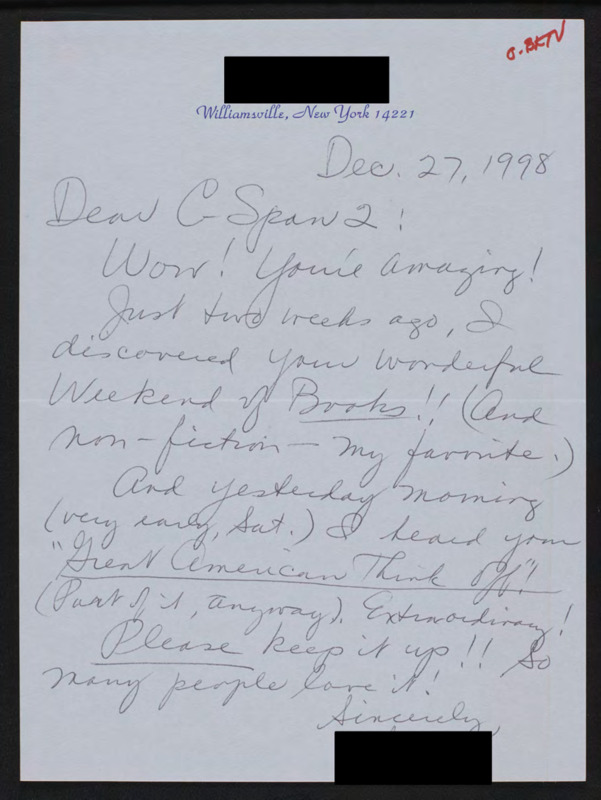 G-BKTV
Williamsville, New York 14221
Dec. 27, 1998
Dear C-Span 2!
Wow! You're amazing!
Just two weeks ago, I
discovered your wonderful
Weekend of Books!! (And
non-fiction - my favorite.)
And yesterday morning
(very early, Sat.) I heard your
"Great American Think Off"!
(Part of it, anyway). Extraordinary!
Please keep it up!! So
many people love it!
Sincerely,